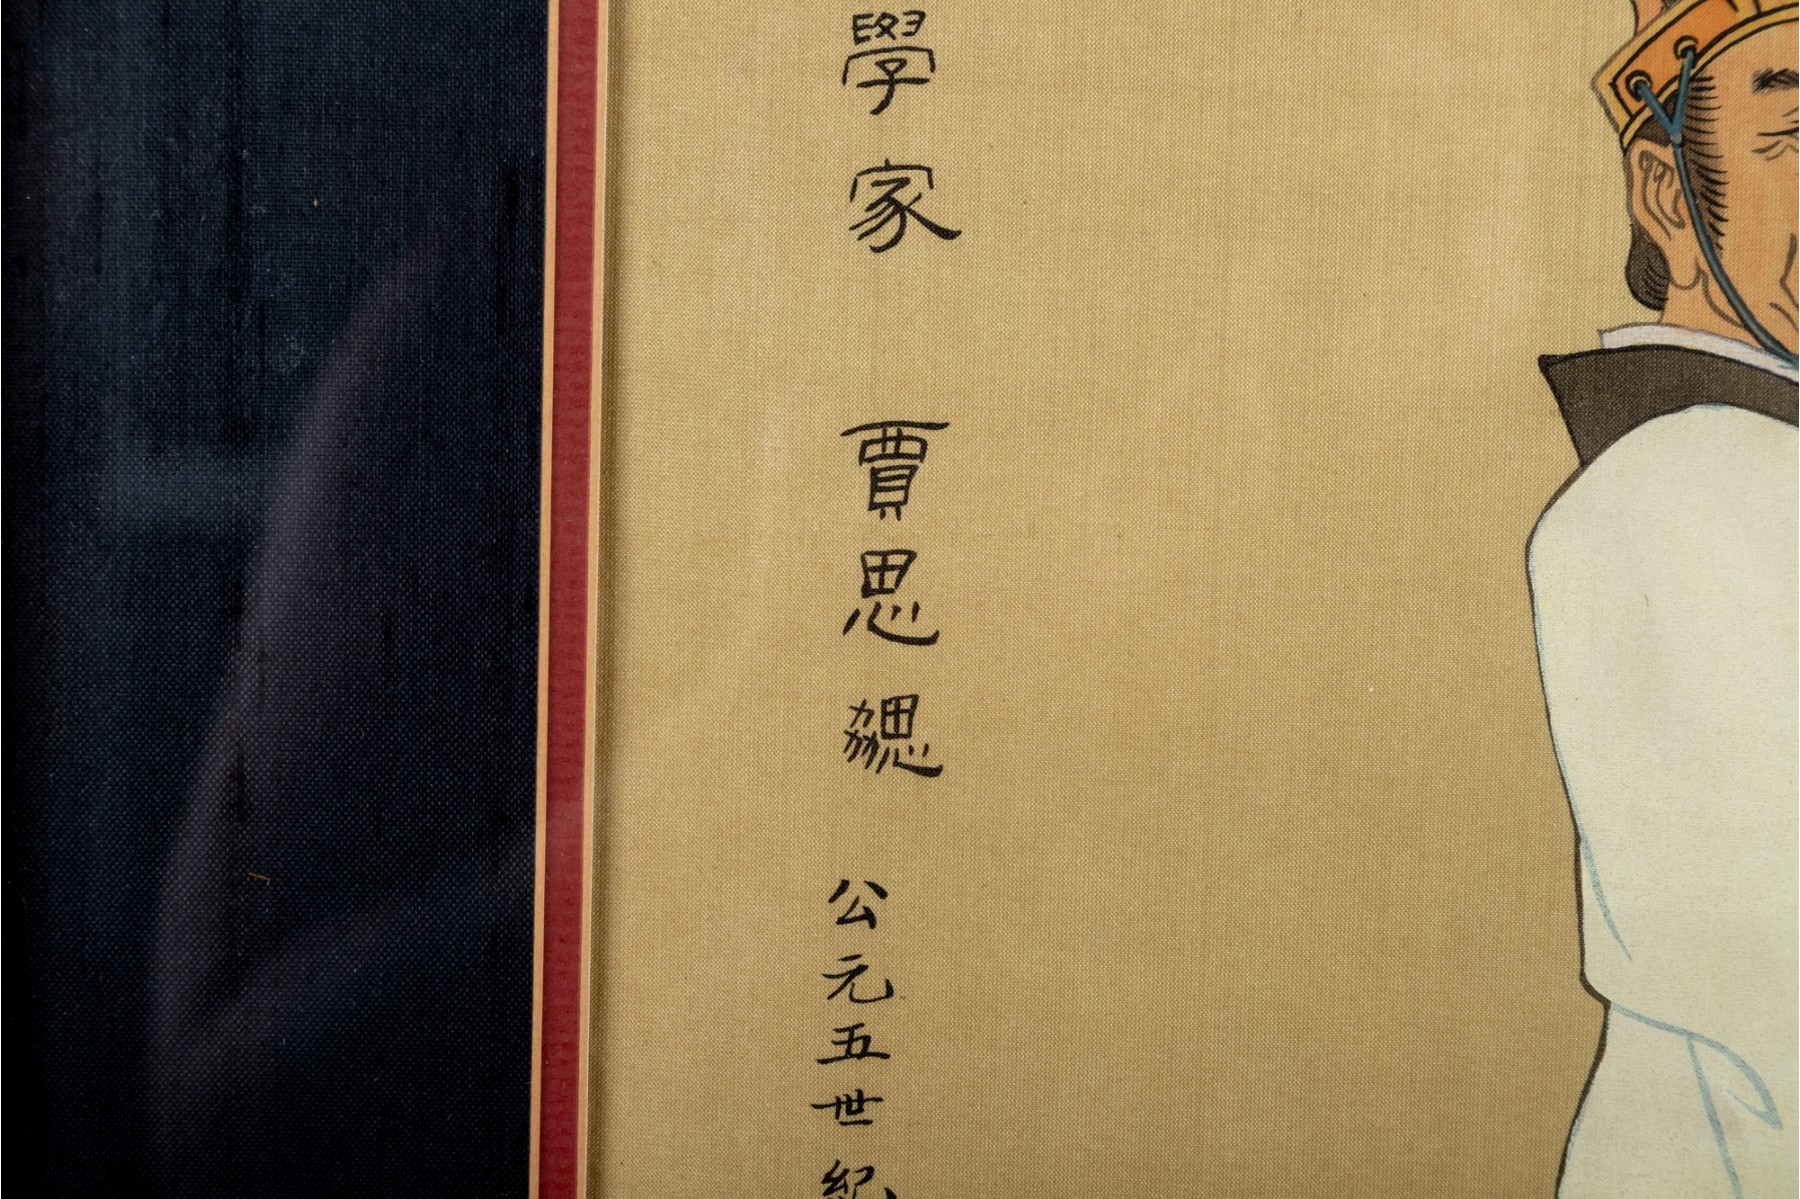 學家 賈思勰 公元五世紀